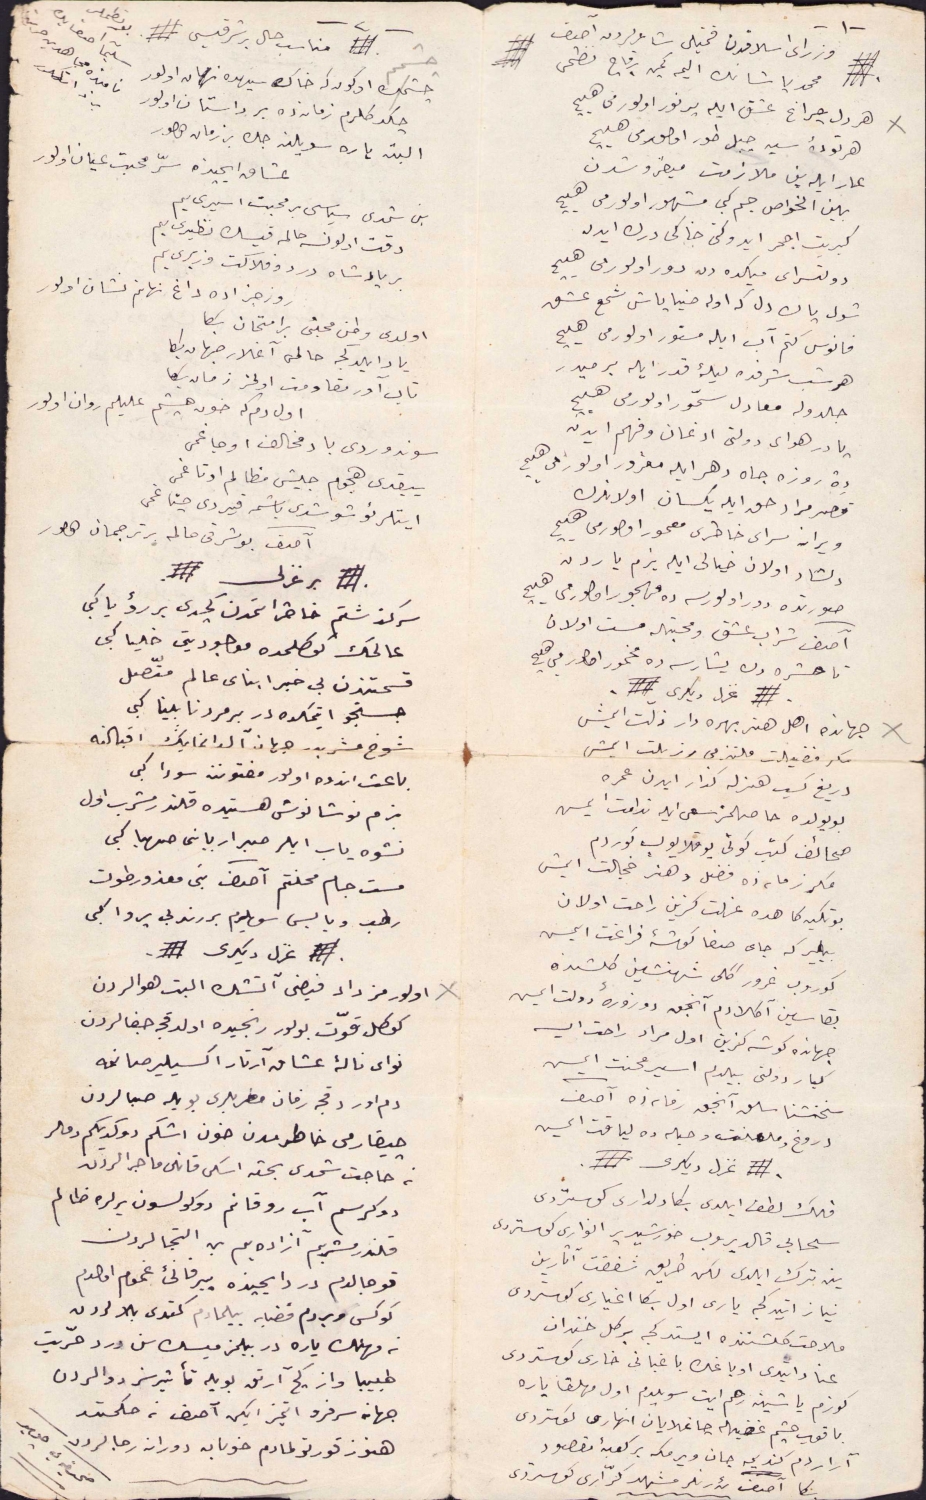 -١-
وزرای اسلافدن فخیلی شاعرلردن آصف
محمد پاشانك الیمه كچن بر قاچ نظمی
هر دل چراغ عشق ایله پرنور اولورمی هیچ
هر تودهٔ سیه جبل طور اولورمی هیچ
عار ایله ین ملازمت میفروشدن
بین الخواص جم كبی مشهور اولورمی هیچ
كبریت احمر ایدوكنی خاكی درك ایدن
دولتسرای میكده دن دور اولورمی هیچ
شول پاك دل كه اوله ضیاپاش شمع عشق
فانوس كتم آب ایله مستور اولورمی هیچ
هر شب شرفده لیلهٔ قدر ایله بر میدر
معادل اولورمی هیچ
پا در هوای دولتی اذعان وفهم ایدن
ده روزه جاه دهر ایله مغرور اولورمی هیچ
قصر مراد حق ایله یكسان اولانلرك
ویرانه سرای خاطری معمور اولورمی هیچ
دلشاد اولان خیالی ایله بزم یاردن
صورتده دور اولورسه ده مهجور اولورمی هیچ
آصف شراب عشق ومحبتله مست اولان
تا حشره دك یشارسه ده مخمور اولورمی هیچ
غزل دیكری
جهانده اهل هنر بهره دار ذلت ایمش
مكر فضیلت رذیلت ایمش
دریغ كسب هنرله كذار ایدن عمره
بو یولده حاصلمز سعی ایله ندامت ایمش
صحائف كتب كونی یوقلایوب كوردم
مكر زمانه ده فضل وهنر خجالت ایمش
بو تنكناهده عزلت كزین راحت اولان
بیلیر كه جای صفا كوشهٔ فراغت ایمش
كوروب غرور كلی شهنشین كلشنده
بقاسین آكلادم آنجق دو روزهٔ دولت ایمش
جهانده كوشه كزین اول مراد راحت ایسه
كبار دولتی بیلدم اسیر محنت ایمش
سخنشناسلق آنجق زمانه ده آصف
دروغ وحیله ده لیاقت ایمش
غزل دیكری
فلك لطف ایلدی بكا دلداری كوستردی
سحابی قالدیروب خورشید پر انواری كوستردی
ینه ترك ایلدی لكن طریق شفقت آثارین
نیاز ایتدكجه یاری اول بكا اغیاری كوستردی
ملاحت كلشننده ایستدكجه بر كل خندان
عناد ایتدی او باغك باغبانی خاری كوستردی
كوزم یاشینه رحم ایت سویلدم اول مهلقا یاره
باقوب چشم غضبله چاغلایان انهاری كوستردی
آراردم كندیمه جان ویرمكه بر كعبهٔ مقصود
بكا آصف مشهد كراری كوستردی
-٢-
مناسب حال بر شرقیسی
چشمك اوكون كه خاك سیهده نهان اولور
چكدكلرم زمانده بر داستان اولور
البته یاره سویلنه جك بر زمان اولور
عشاق ایچنده سر محبت عیان اولور
بن شمدی سیاسی بر محبت اسیری یم
دقت اولونسه حالمه قیسك نظیری یم
بر پادشاه درد وفلاكت وزیری یم
روز جزاده داغ نهانم نشان اولور
اولدی وطن محبتی بر امتحان بكا
یاد ایلدكجه حالمی آغلار جهان بكا
تاب آور مقاومت اولمز زمان بكا
اول دم كه خون چشم علیلم روان اولور
سوندوردی باد مخالف اوجاغمی
ییقدی هجوم جیش مظالم اوتاغمی
آصف بو شرقی حالمه بر ترجمان اولور
بر غزلی
سركذشتم خاطراتمدن كچدی بر رؤیا كبی
عالمك كوكلمده موجودیتی خلیا كبی
قسمتندن بی خبر ابنای عالم متصل
جستجو ایتمكده در بر مرد نابینا كبی
شوخ مشربدر جهان آلدانمایك اقبالنه
باعث اندوه اولور مفتوننه سودا كبی
بزم نوشانوش هستیده قلندر مشرب اول
نشوه یاب ایلر صبر اربابنی صهبا كبی
مست جام محنتم آصف بنی معذور طوت
رطب ویابس سویلرم بر رند بی پروا كبی
غزل دیكری
اولورمز داد فیضی آتشك البت هوالردن
كوكل قوت بولور رنجیده اولدقجه جفالردن
نوای نالهٔ عشاق آرتار اكسیلیر صانمه
دم اوردقجه رفان مطربلری بویله صبالردن
چیقارمی خاطرمدن خون اشكم دوكدیكم دملر
نه حاجت شمدی بحثه اسكی قانلی ماجرالردن
دوكرسم آب رو قانم دوكولسون یرلره ظالم
قلندر مشربم آزاده یم بن التجالردن
قوجالدم درد ایچنده پیر فانئ غموم اولدم
كوكس ویردم قضایه بیلمادم كندی بلالردن
نه مهلك یاره در بیلمزمیسك سن درد حریت
طبیبا واز كچ آرتق بویله تأثیرسز دوالردن
جهانه سرفرو ایتمز ایكن آصف نه حكمتدر
هنوز قورتولمادم خوبان دورانه رجالردن